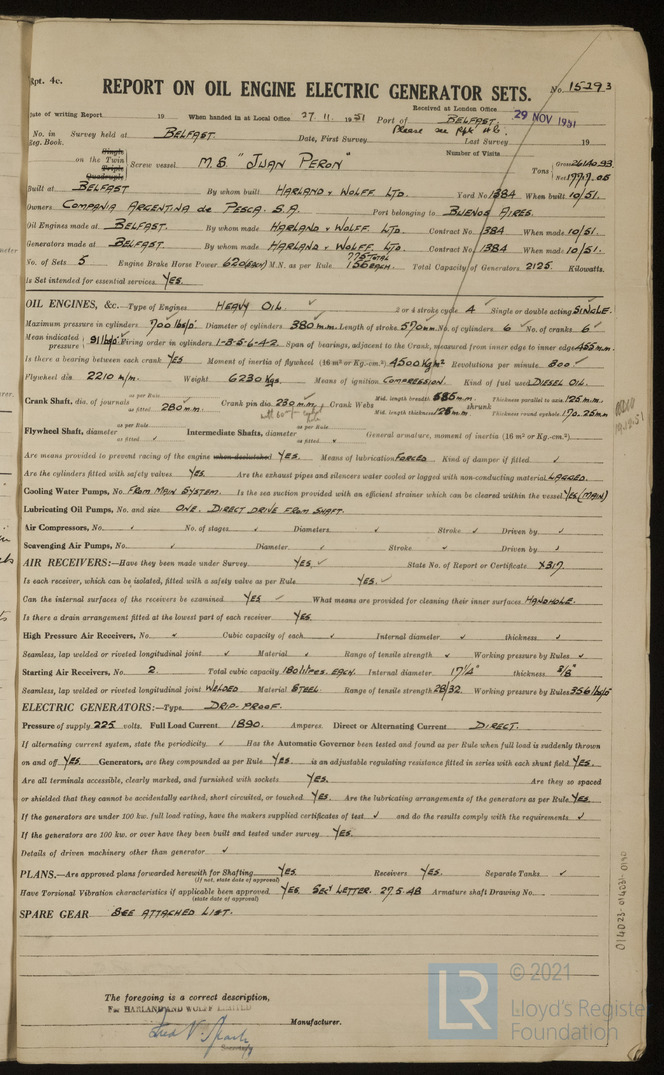 Rpt. 4c.
REPORT ON OIL ENGINE ELECTRIC GENERATOR SETS. No. 15293
Received at London Office 29 NOV 1951
Date of writing Report 19 When handed in at Local Office 27. 11. 1951 Port of BELFAST.
Please see Rpt 4b.
No. in Reg. Book. Survey held at BELFAST Date, First Survey Last Survey 19
Number of Visits
on the Single Twin Triple Quadruple Screw vessel M.S. "JUAN PERON" Tons Gross 26140.93 Net 17997.05
Built at BELFAST By whom built HARLAND & WOLFF LTD. Yard No. 1384 When built 10/51.
Owners COMPANIA ARGENTINA de PESCA. S.A. Port belonging to BUENOS AIRES.
Oil Engines made at BELFAST. By whom made HARLAND & WOLFF LTD. Contract No. 1384 When made 10/51.
Generators made at BELFAST. By whom made HARLAND & WOLFF LTD. Contract No. 1384 When made 10/51.
No. of Sets 5 Engine Brake Horse Power 620(EACH) M.N. as per Rule 775 TOTAL 155 EACH. Total Capacity of Generators 2125 Kilowatts.
Is Set intended for essential services YES
OIL ENGINES, &c.—Type of Engines HEAVY OIL 2 or 4 stroke cycle 4 Single or double acting SINGLE.
Maximum pressure in cylinders 700 lbs/□" Diameter of cylinders 380 m.m. Length of stroke 570 m.m. No. of cylinders 6 No. of cranks 6
Mean indicated pressure 91 lb/□" Firing order in cylinders 1-3-5-6-4-2. Span of bearings, adjacent to the Crank, measured from inner edge to inner edge 455 m.m.
Is there a bearing between each crank YES Moment of inertia of flywheel (16 m² or Kg.-cm.²) 4500 Kg m² Revolutions per minute 300
Flywheel dia. 2210 m/m. Weight 6230 Kgs. Means of ignition COMPRESSION. Kind of fuel used DIESEL OIL.
Crank Shaft, dia. of journals as per Rule as fitted 280 m.m. Crank pin dia. 230 m.m. Crank Webs Mid. length breadth 585 m.m. Mid. length thickness 125 m.m. shrunk Thickness parallel to axis 125 m.m. Thickness round eyehole 170.25 m.m
Flywheel Shaft, diameter as per Rule as fitted Intermediate Shafts, diameter as per Rule as fitted General armature, moment of inertia (16 m² or Kg.-cm.²)
Are means provided to prevent racing of the engine when declutched YES. Means of lubrication FORCED Kind of damper if fitted
Are the cylinders fitted with safety valves YES. Are the exhaust pipes and silencers water cooled or lagged with non-conducting material LAGGED.
Cooling Water Pumps, No. FROM MAIN SYSTEM. Is the sea suction provided with an efficient strainer which can be cleared within the vessel YES (MAIN)
Lubricating Oil Pumps, No. and size ONE. DIRECT DRIVE FROM SHAFT.
Air Compressors, No. No. of stages Diameters Stroke Driven by
Scavenging Air Pumps, No. Diameter Stroke Driven by
AIR RECEIVERS:—Have they been made under Survey YES. State No. of Report or Certificate X317.
Is each receiver, which can be isolated, fitted with a safety valve as per Rule YES.
Can the internal surfaces of the receivers be examined YES What means are provided for cleaning their inner surfaces HANDHOLE.
Is there a drain arrangement fitted at the lowest part of each receiver YES.
High Pressure Air Receivers, No. Cubic capacity of each Internal diameter thickness
Seamless, lap welded or riveted longitudinal joint Material Range of tensile strength Working pressure by Rules
Starting Air Receivers, No. 2. Total cubic capacity 180 litres. EACH. Internal diameter 17¼" thickness 3/8"
Seamless, lap welded or riveted longitudinal joint WELDED Material STEEL. Range of tensile strength 28/32. Working pressure by Rules 356 lb/□"
ELECTRIC GENERATORS:—Type DRIP PROOF.
Pressure of supply 225 volts. Full Load Current 1890. Amperes. Direct or Alternating Current DIRECT.
If alternating current system, state the periodicity Has the Automatic Governor been tested and found as per Rule when full load is suddenly thrown
on and off YES. Generators, are they compounded as per Rule YES. is an adjustable regulating resistance fitted in series with each shunt field YES.
Are all terminals accessible, clearly marked, and furnished with sockets YES. Are they so spaced
or shielded that they cannot be accidentally earthed, short circuited, or touched YES. Are the lubricating arrangements of the generators as per Rule YES.
If the generators are under 100 kw. full load rating, have the makers supplied certificates of test and do the results comply with the requirements
If the generators are 100 kw. or over have they been built and tested under survey YES.
Details of driven machinery other than generator
PLANS.—Are approved plans forwarded herewith for Shafting YES. Receivers YES. Separate Tanks
(If not, state date of approval)
Have Torsional Vibration characteristics if applicable been approved YES. SECY LETTER. 27.5.48 Armature shaft Drawing No.
(state date of approval)
SPARE GEAR SEE ATTACHED LIST.
014023-014031-0140
The foregoing is a correct description,
For HARLAND AND WOLFF LIMITED
Manufacturer.
Secretary
LR © 2021
Lloyd's Register
Foundation